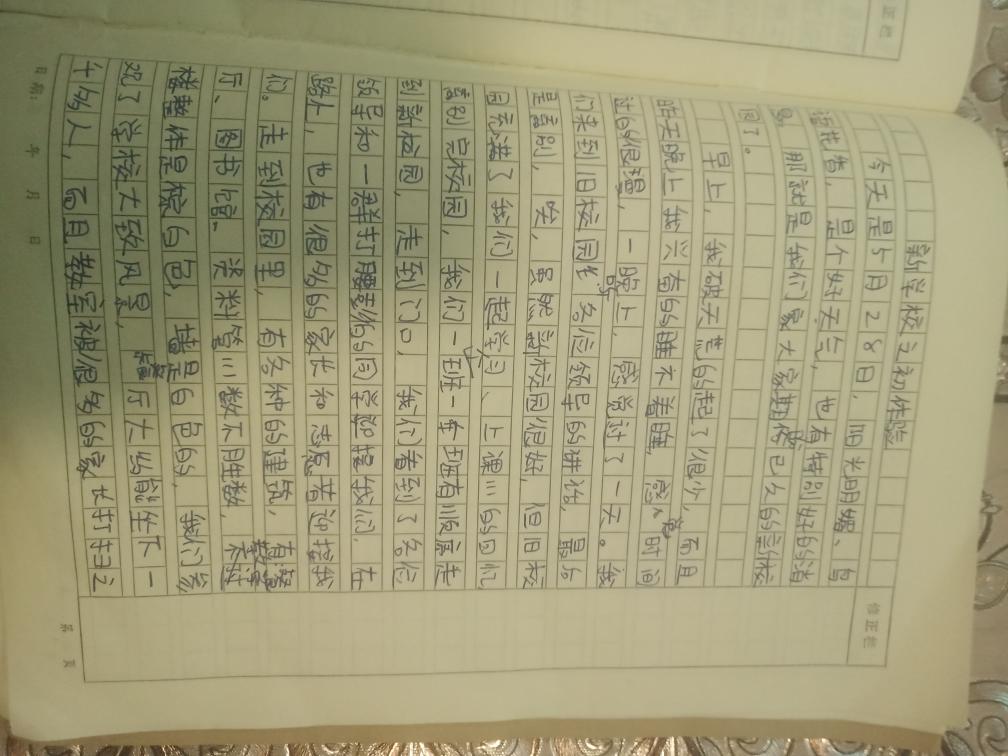 新学校之初体验
今天是5月28日，阳光明媚、鸟
语花香，是个好天气，也有特别好的消
息，那就是我们家大家期待已久的新校
园了。
早上，我破天荒的起了很少，而且
昨天晚上我兴奋的睡不着睡，感觉时间
过的很慢，一晚上，感觉讨了一天。我
们来到旧校园听各位领导的讲话，最后
是喜别，哎，虽然新校园很好，但旧校
园充满了我们一起学习、上课…的回忆
喜别完校园，我们一班一车班有顺序走
到新校园，走到门口，我们看到了各位
领导和一群打腰鼓的同学迎接我们，在
路上，也有很多的家长和志愿者迎接我
们。走到校园里，有各种的建筑，有餐
厅、图书馆、教学楼…数不胜数，不过
楼整体是棕白色，墙是白色的，我们参
观了学校大致风景，餐厅大约能坐下一
千多人，而且教室被很多的家长打扫之
修正栏
日期： 年 月 日
第 页
修正栏